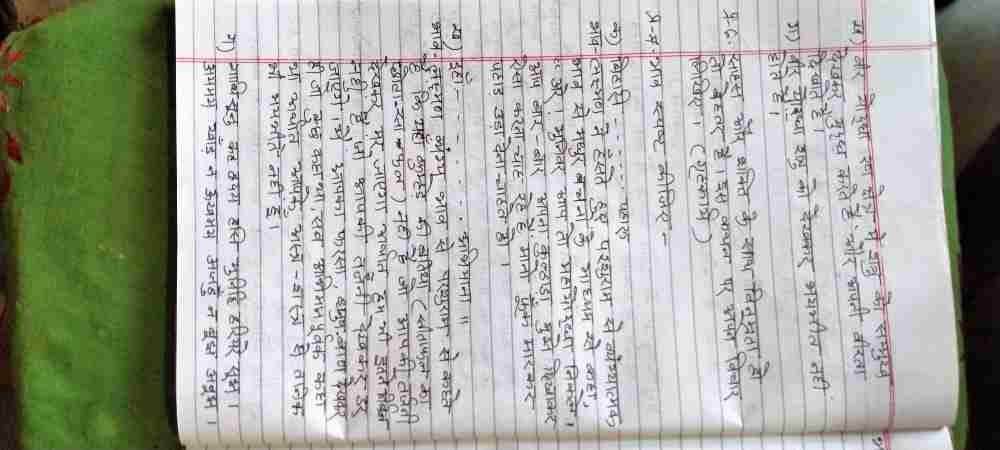 ख) वीर योद्धा रण क्षेत्र में शत्रु के सम्मुख
देखकर युद्ध करते हैं, और अपनी वीरता
दिखाते हैं।
ग) वीर योद्धा शत्रु को देखकर भयभीत नहीं
होते हैं।
प्र.6. साहस और शक्ति के साथ विनम्रता हो
तो बेहतर है। इस कथन पर अपने विचार
लिखिए। (गृहकार्य)
भाव स्पष्ट कीजिए-
क) बिहसि ------ पहारू
भाव- लक्ष्मण ने हँसते हुए परशुराम से व्यंग्यात्मक
भाव से मधुर वचनों के माध्यम से कहा,
मुनिवर आप तो महायोद्धा निकले।
आप बार बार अपना कुल्हाड़ा मुझे दिखाकर
डराना चाह रहे हैं, मानो फूँक मारकर
पहाड़ उड़ा देना चाहते हो।
ख) इहाँ - . . . . . . अभिमाना॥
भाव- लक्ष्मण व्यंग्य भाव से परशुराम से कहते
हैं कि यहाँ कुम्हड़ की बतिया
नहीं है जो आपकी तर्जनी
देखकर मर जाएगा अर्थात हम भी इतने कमजोर
नहीं हैं जो आपकी तर्जनी देखकर डर
जाएंगे। मैं आपका फरसा, धनुष-बाण देखकर
ही जो कुछ कहा था सब अभिमानपूर्वक कहा
था अर्थात
भी समझते नहीं है।
ग) गाधिसूनु कह हृदय हसि मुनिहि हरियरे सूझ।
अयमय खाँड़ न ऊखमय अजहुँ न बूझ अबूझ।